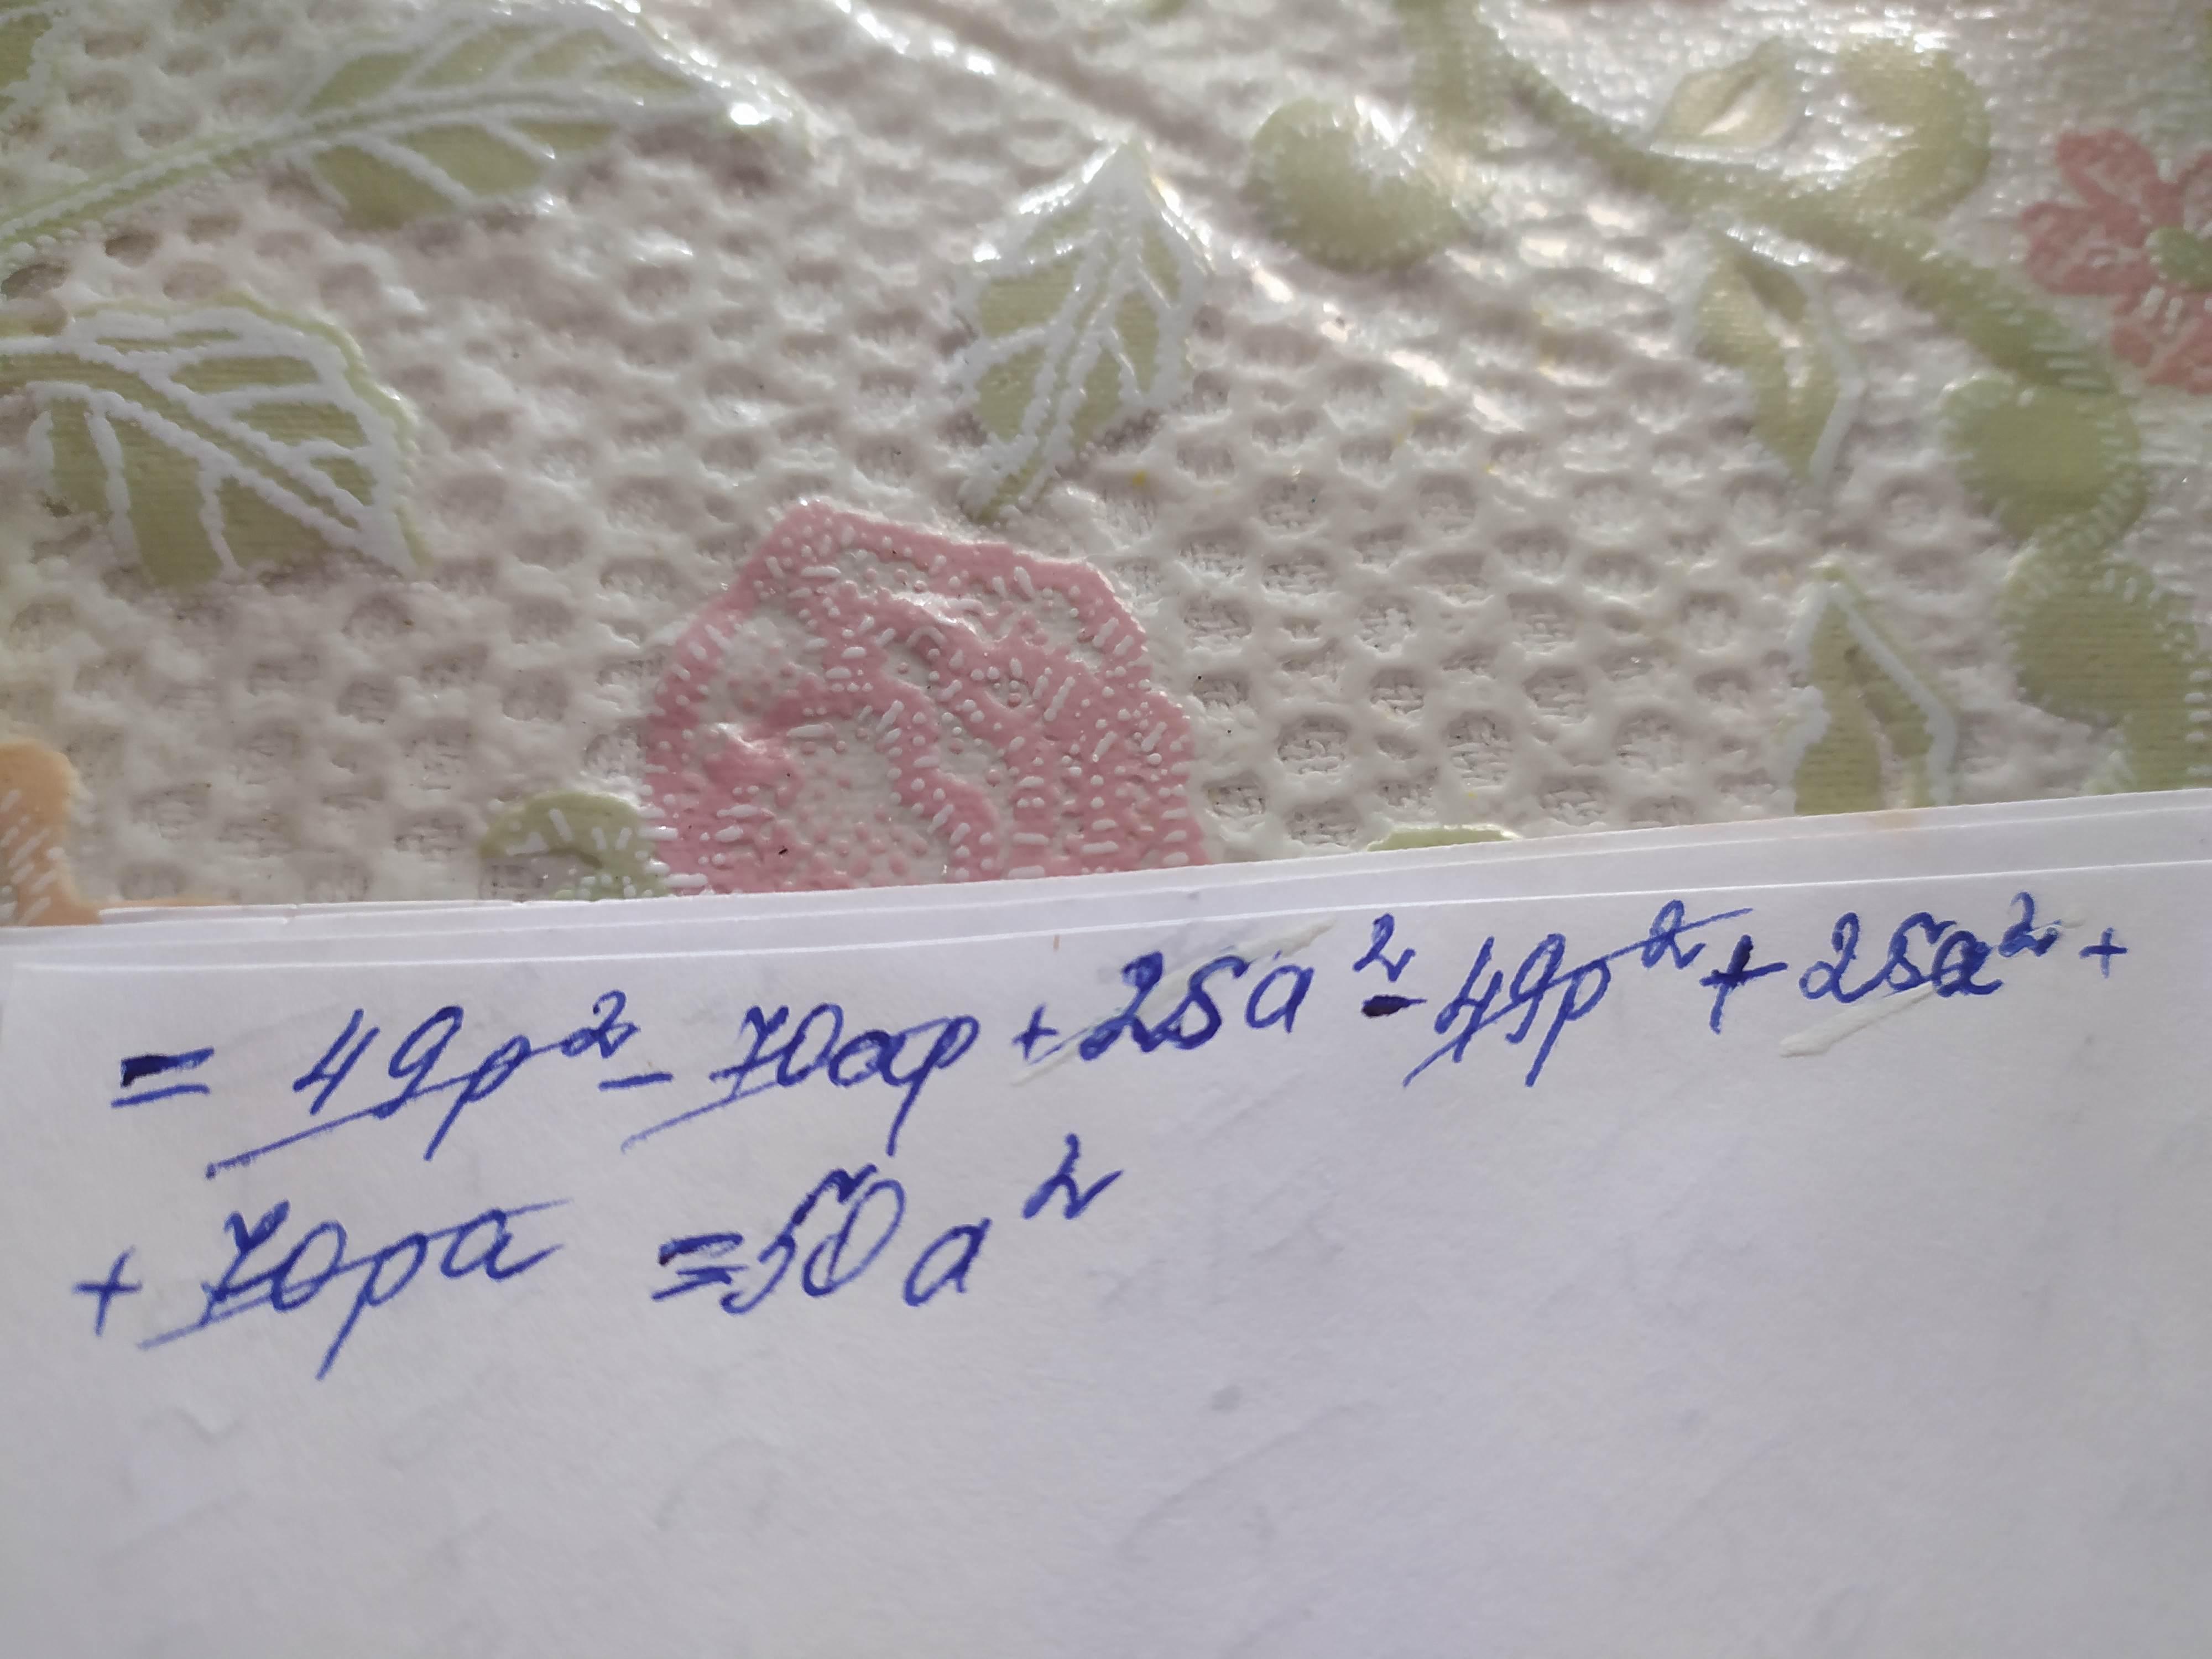 = 49p² - 70ap + 25a² - 49p² + 25a² +
+ 70pa = 50a²